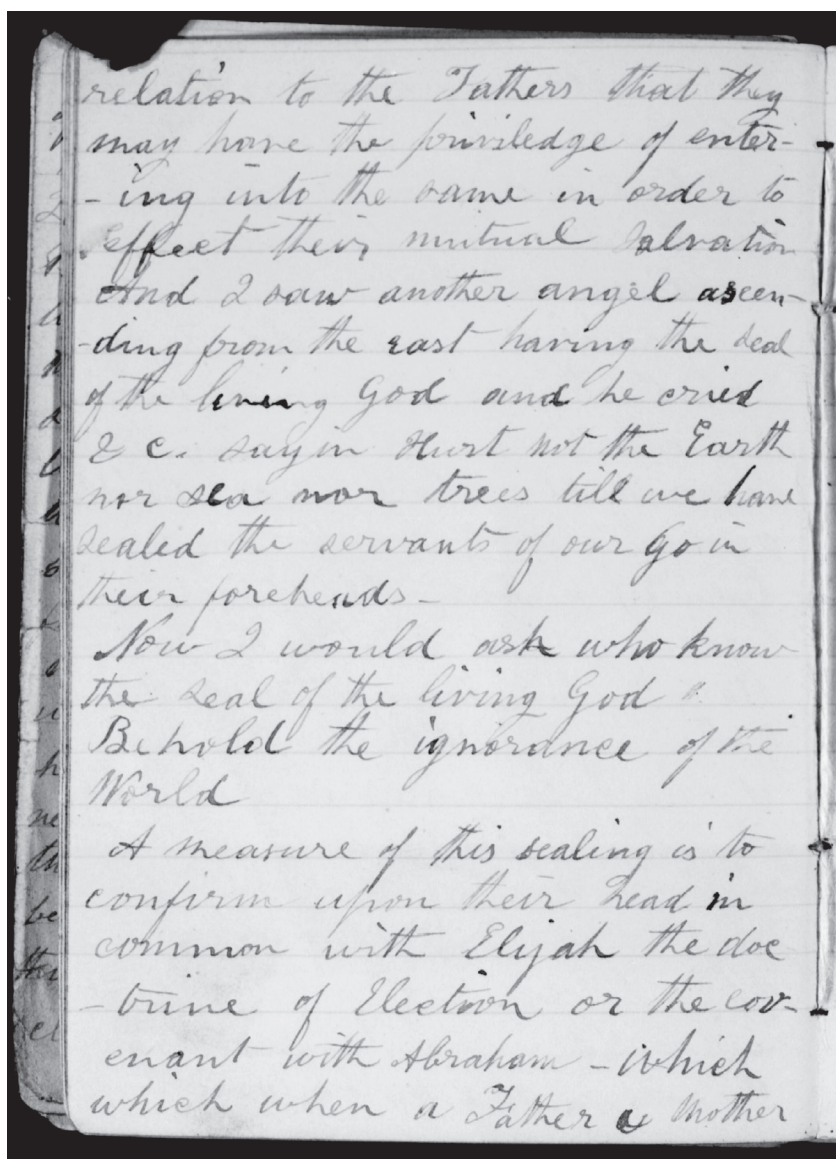 relation to the Fathers that they
may have the priviledge of enter-
-ing into the same in order to
effect their mutual salvation
And I saw another angel ascen-
-ding from the east having the seal
of the living God and he cried
& c. sayin Hurt not the Earth
nor sea nor trees till we have
sealed the servants of our Go in
their foreheads-
Now I would ask who know
the seal of the living God
Behold the ignorance of the
World
A measure of this sealing is to
confirm upon their head in
common with Elijah the doc
-trine of Election or the cov-
enant with Abraham - which
which when a Father & Mother